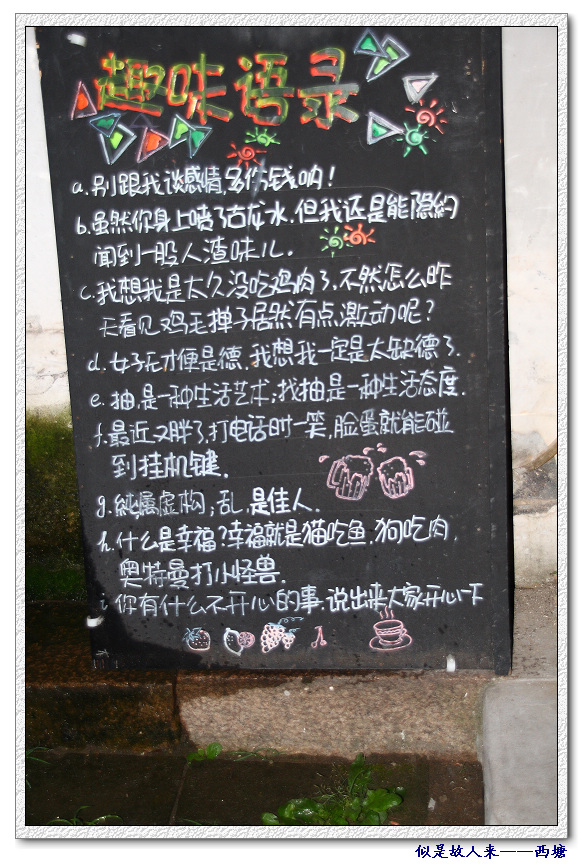 趣味语录
a.别跟我谈感情,多伤钱呐!
b.虽然你身上喷了古龙水,但我还是能隐约
闻到一股人渣味儿.
c.我想我是太久没吃鸡肉了,不然怎么昨
天看见鸡毛掸子居然有点激动呢?
d.女子无才便是德.我想我一定是太缺德了.
e.抽,是一种生活艺术;找抽,是一种生活态度.
f.最近又胖了,打电话时一笑,脸蛋就能碰
到挂机键.
g.純属虚构;乱,是佳人.
h.什么是幸福?幸福就是猫吃鱼,狗吃肉,
奥特曼打小怪兽.
i.你有什么不开心的事.说出来大家开心一下
似是故人来——西塘